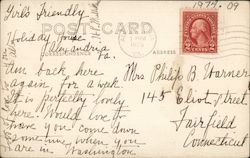 1974.09
Girl's Friendly
POST CARD
Holiday House
Alexandria
Va.
ADDRESS
Am back here
again, for a week.
It is perfectly lovely
here. Would love to
have you come down
some time when you
are in Washington.
Mrs Philip B. Warner
145 Eliot Street
Fairfield
Connecticut
2 CENTS 2